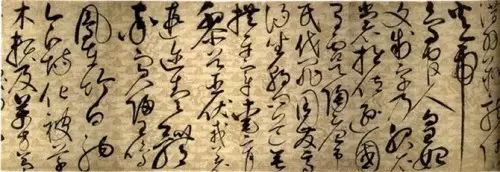 羽翔龍師
火帝
鳥官人皇始
制文字乃服衣
裳推位遜國
有虞陶唐弔
民伐罪周發商
湯坐朝問道垂
拱平章愛育
黎首臣伏戎羌
遐邇壹體
率賓歸王鳴
鳳在竹白駒
食場化被草
木賴及萬方蓋